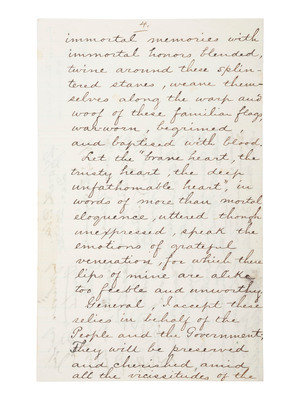 4.
immortal memories with
immortal honors blended,
twine around these splin-
tered staves, weave them-
selves along the warp and
woof of these familiar flags,
war-worn, begrimed,
and baptised with blood.
Let the "brave heart, the
trusty heart, the deep
unfathomable heart", in
words of more than mortal
eloquence, uttered though
unexpressed, speak the
emotions of grateful
veneration for which these
lips of mine are alike
too feeble and unworthy.
General, I accept these
relics in behalf of the
People and the Government;
They will be preserved
and cherished, amid
all the vicissitudes of the